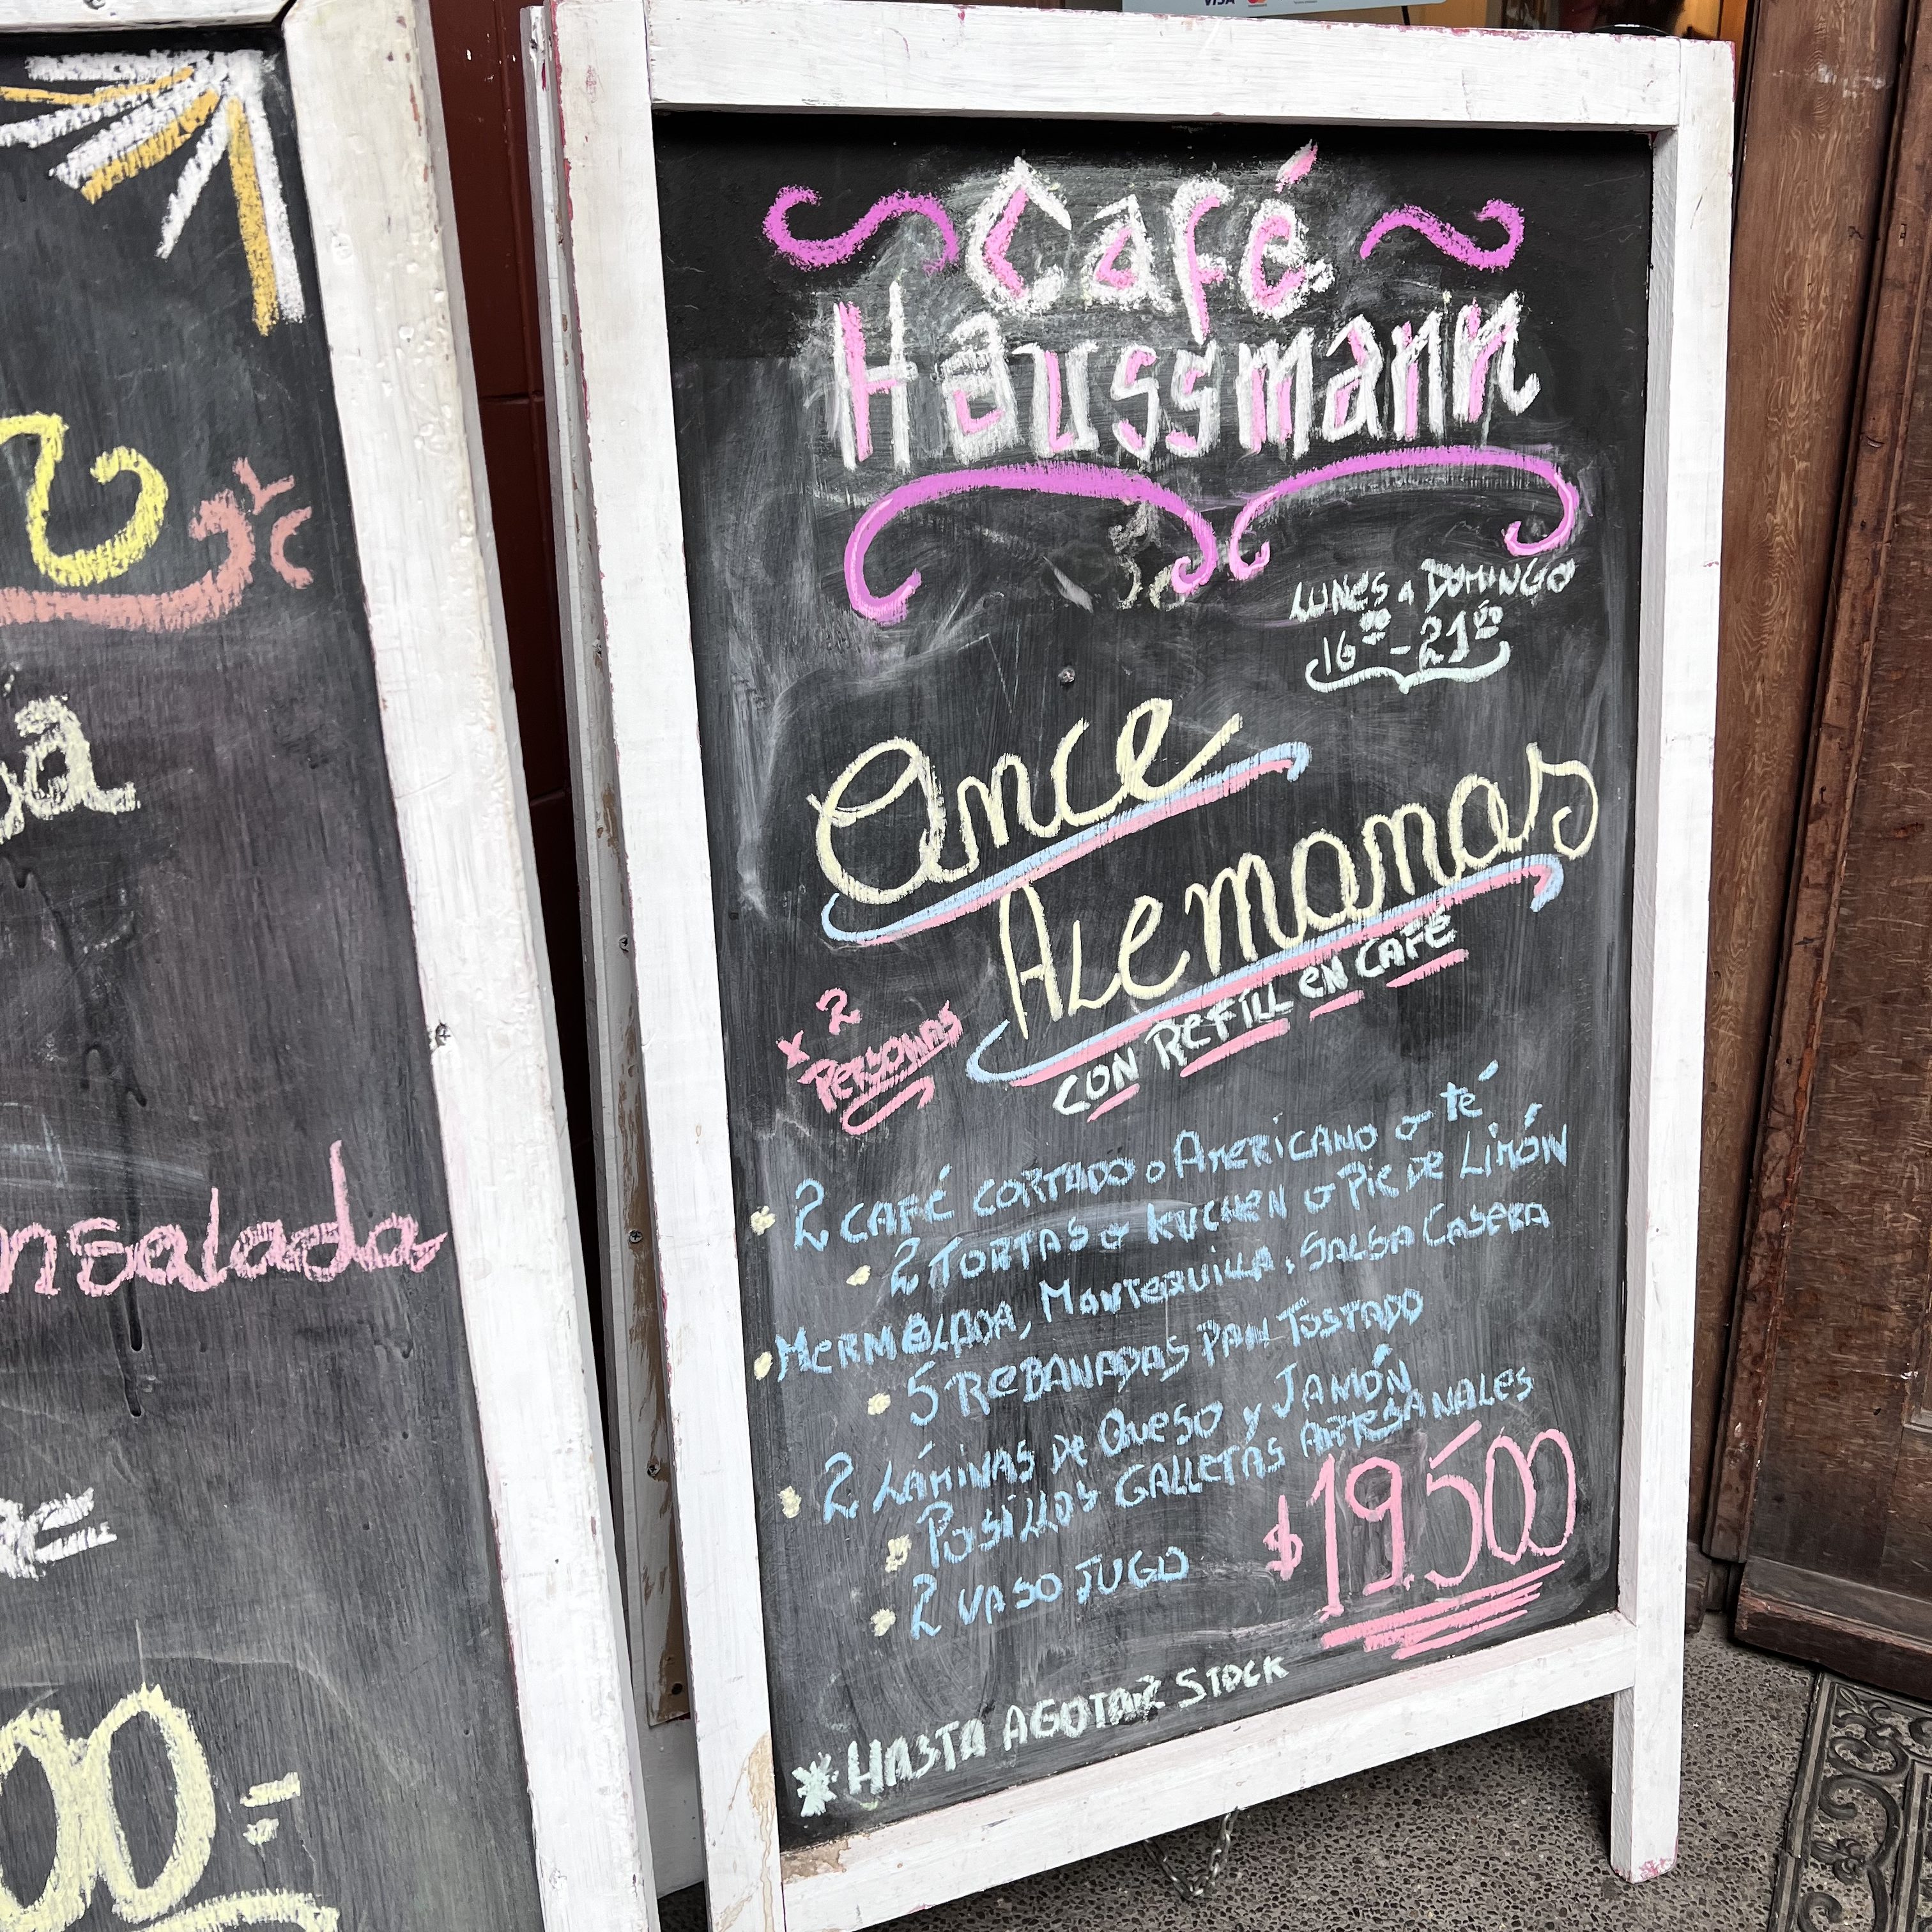 VISA
Café
Haussmann
LUNES a DOMINGO
16:00 - 21:00
Once
ALemanas
CON REFILL EN CAFÉ
x 2
PERSONAS
2 CAFÉ CORTADO o AMERICANO o té
2 TORTAS o KUCHEN o PIE DE LIMÓN
MERMELADA, MANTEQUILLA, SALSA CASERA
5 REBANADAS PAN TOSTADO
2 LÁMINAS DE QUESO Y JAMÓN
POSILLOS GALLETAS ARTESANALES
2 VASO JUGO
$19.500
*HASTA AGOTAR STOCK
nsalada
00=